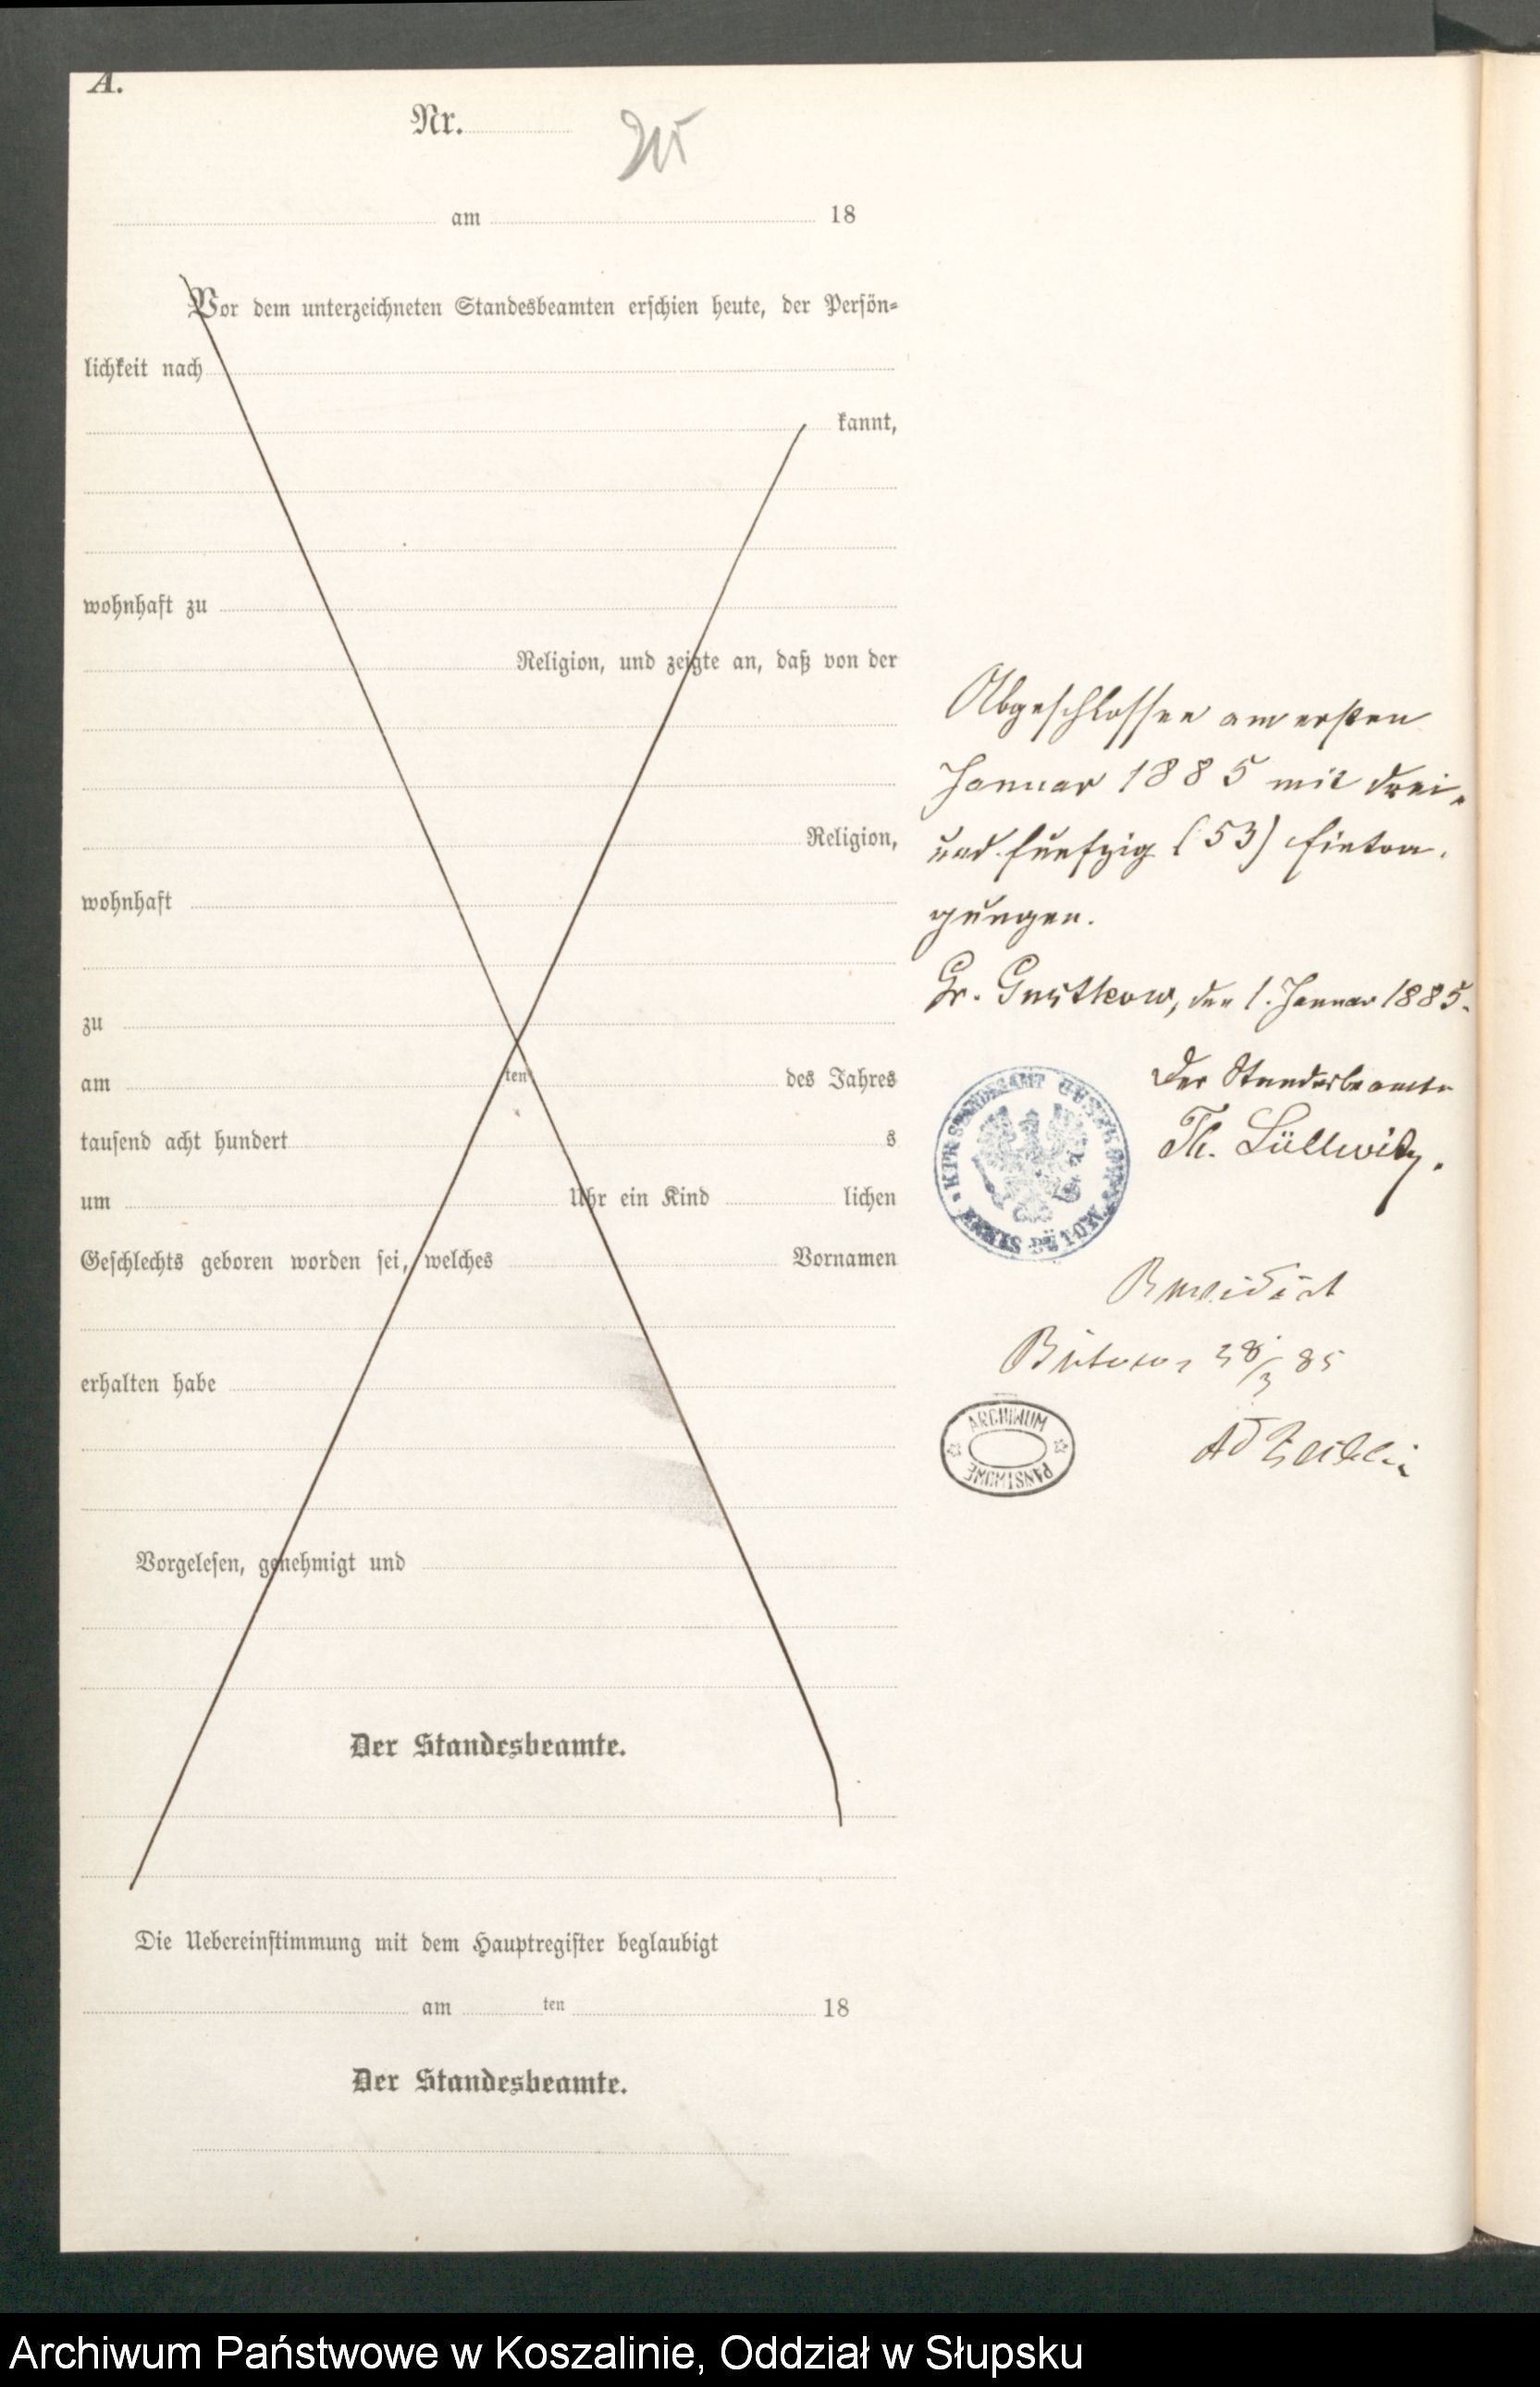 A.
Nr.
am 18
Vor dem unterzeichneten Standesbeamten erschien heute, der Persön-
lichkeit nach
kannt,
wohnhaft zu
Religion, und zeigte an, daß von der
Religion,
wohnhaft
zu
am ten des Jahres
tausend acht hundert s
um Uhr ein Kind lichen
Geschlechts geboren worden sei, welches Vornamen
erhalten habe
Vorgelesen, genehmigt und
Der Standesbeamte.
Die Uebereinstimmung mit dem Hauptregister beglaubigt
am ten 18
Der Standesbeamte.
Abgeschlossen am ersten
Januar 1885 mit drei-
und fünfzig (53) Eintra-
gungen.
Gr. Gustkow, den 1. Januar 1885.
Der Standesbeamte
Th. Lüllwitz.
Revidirt
Bütow 28/3 85
ARCHIWUM
PAŃSTWOWE
Archiwum Państwowe w Koszalinie, Oddział w Słupsku